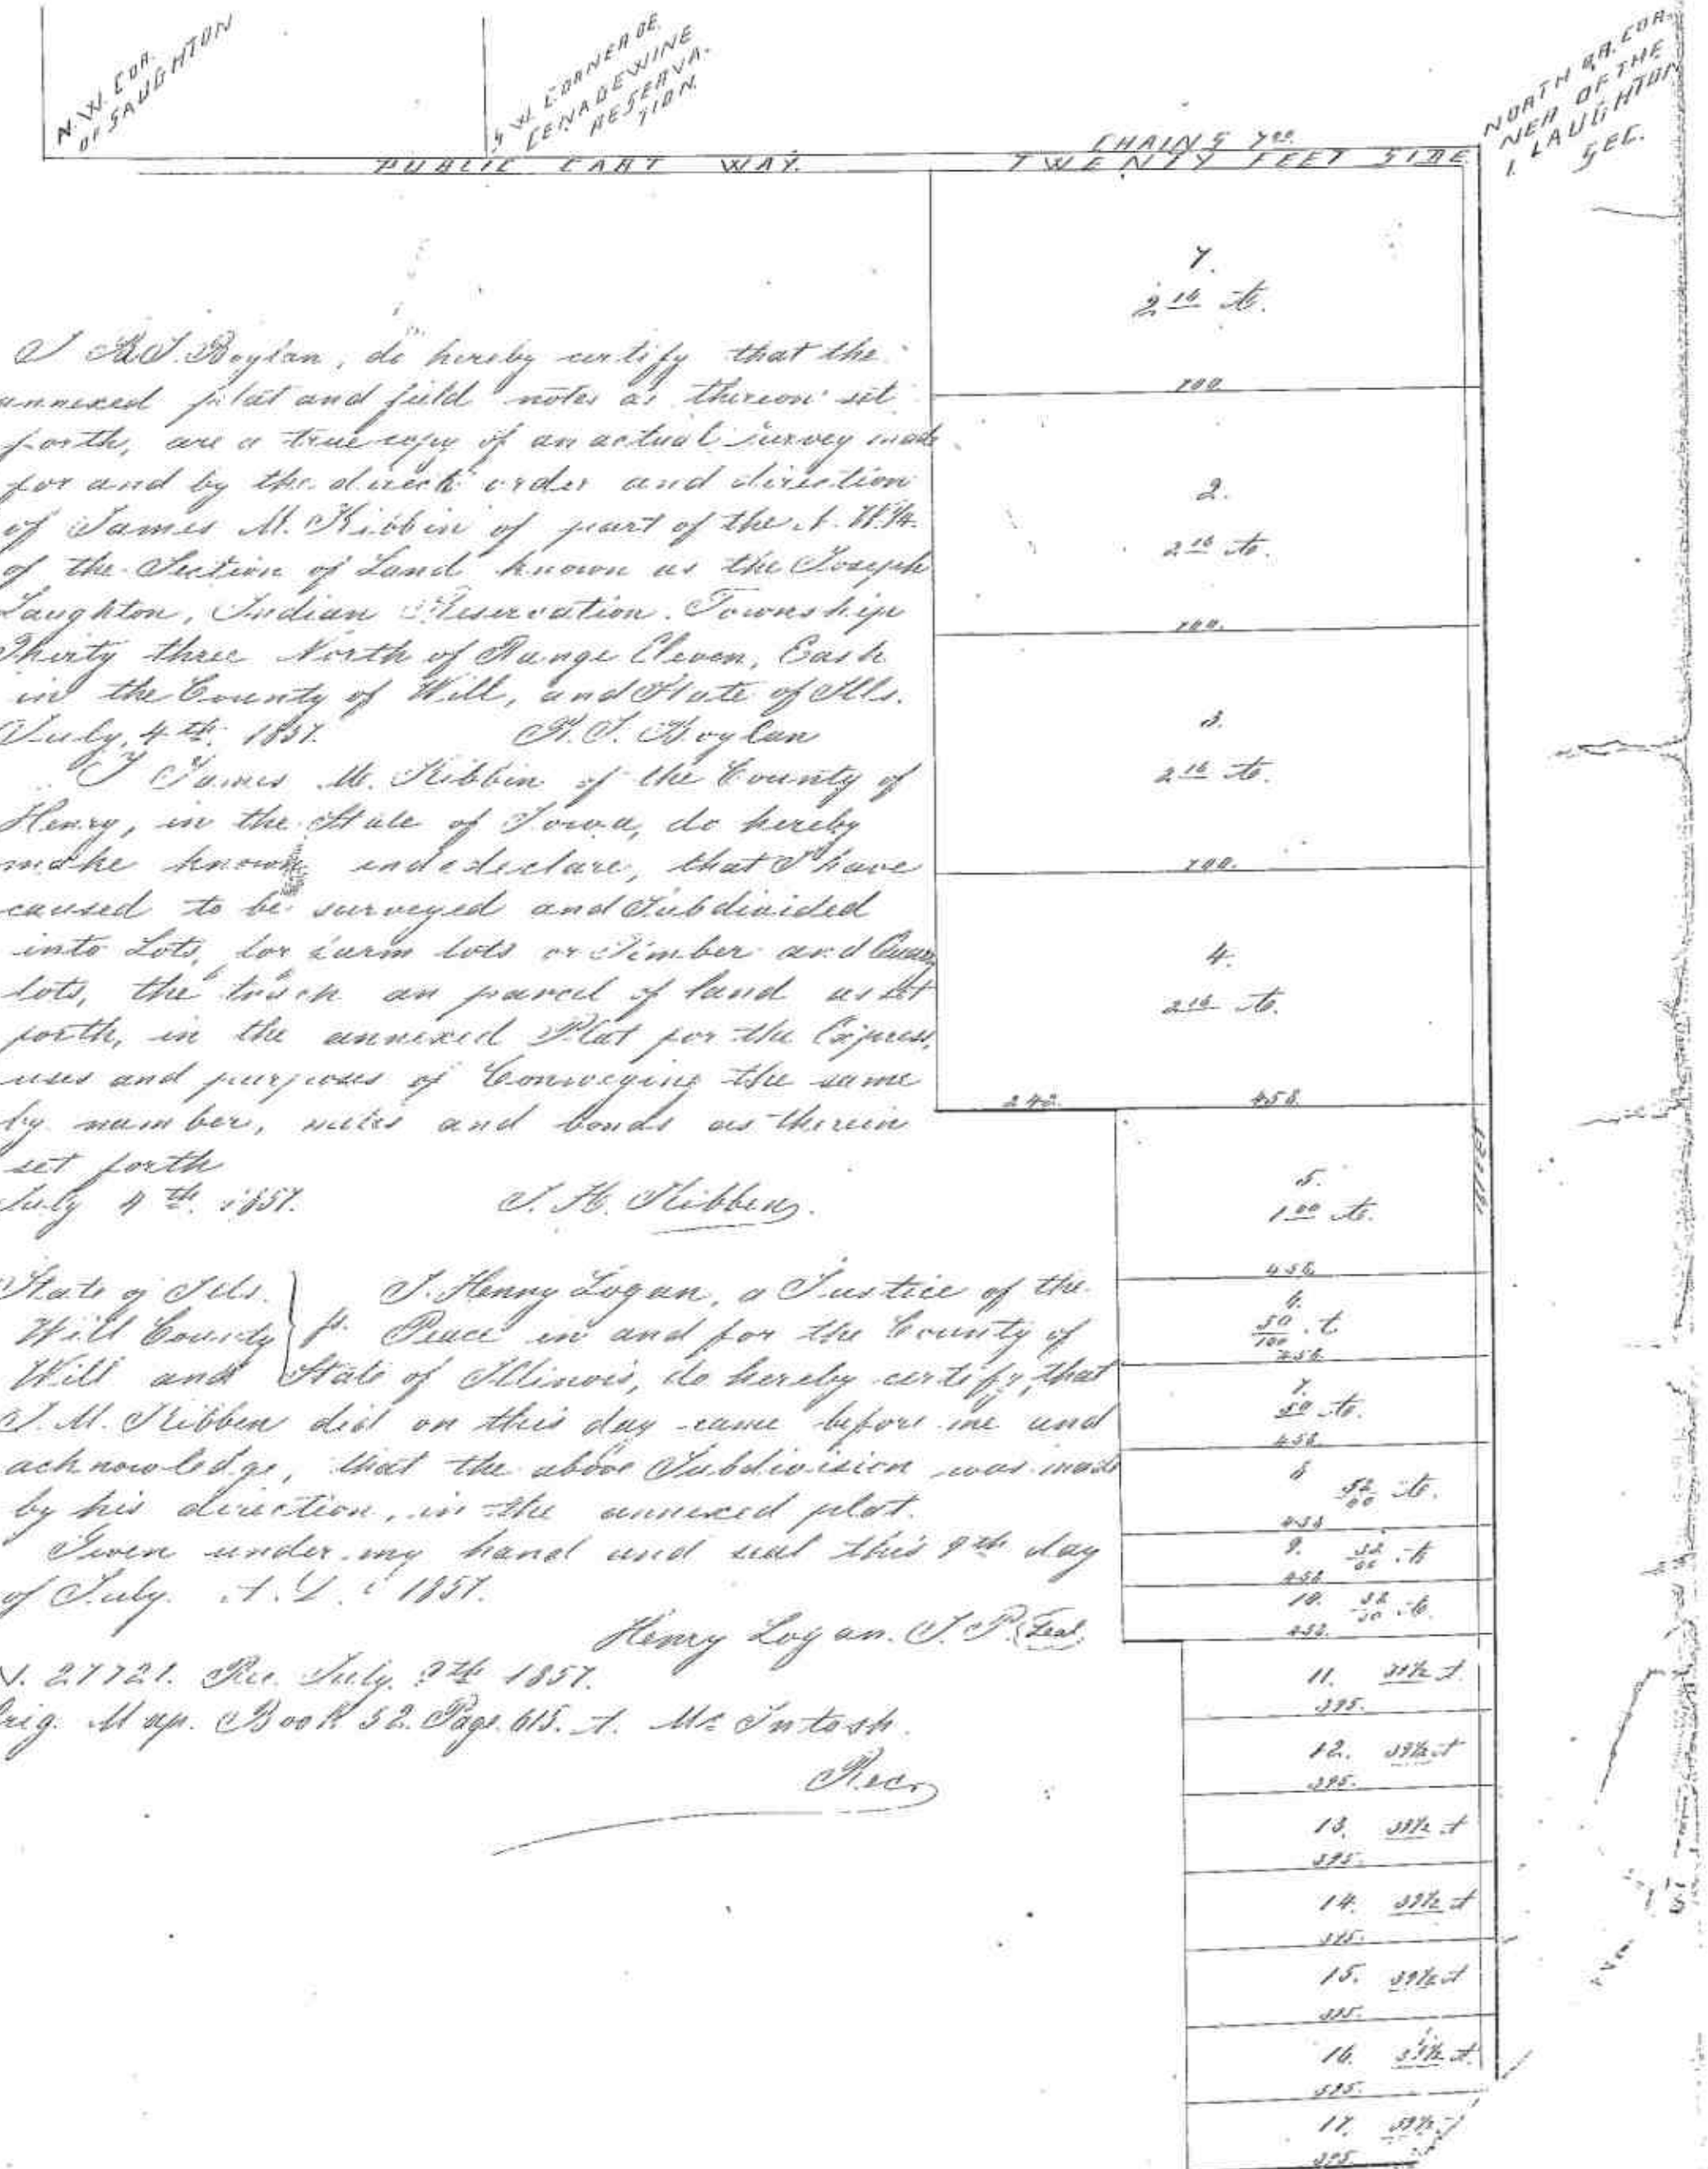 N. W. COR.
OF SAUGHTON
S W. CORNER OF.
CENAGEWINE
RESERVA-
TION.
NORTH QR. COR-
NER OF THE
I. LAUGHTON
SEC.
CHAINS 700.
PUBLIC CART WAY. TWENTY FEET SIDE
I R.J. Boylan, do hereby certify that the
annexed plat and field notes as thereon set
forth, are a true copy of an actual survey made
for and by the direct order and direction
of James M. Kibbin of part of the N. W.¼.
of the Section of Land known as the Joseph
Laughton, Indian Reservation. Township
Thirty three North of Range Eleven, East
in the County of Will, and State of Ills.
July, 4th. 1857. R. J. Boylan
I James M. Kibbin of the County of
Henry, in the State of Iowa, do hereby
make known and declare, that I have
caused to be surveyed and Subdivided
into Lots, for farm lots or Timber and
lots, the an parcel of land as set
forth, in the annexed Plat for the Express,
uses and purposes of Conveying the same
by number, and bonds as therein
set forth
July 4th. 1857. J. H. Kibben.
State of Ills.
Will County
I. Henry Logan, a Justice of the
Peace in and for the County of
Will and State of Illinois, do hereby certify, that
J. M. Kibben did on this day came before me and
acknowledge, that the above Subdivision was made
by his direction, in the annexed plat.
Given under my hand and seal this 9th day
of July. A. D. 1857.
Henry Logan. J. P. Seal.
N. 27721. Rec. July. 9th 1857.
Orig. Map. Book 52. Page. 615. A. Mc Intosh.
Recr
1.
2 16 A.
700.
2.
2 16 A.
700.
3.
2 16 A.
700.
4.
2 16 A.
242. 458.
STREET
5.
1 00 A.
458.
6.
50/100 A
458.
7.
50 A.
458.
8 A.
458
9. A
458
10. A.
458.
11. 39½ A.
395.
12. 39½ A
395.
13. 39½ A
395.
14. 39½ A
395.
15. 39½ A
395.
16. 39½ A.
395.
17. 39½ A
395.